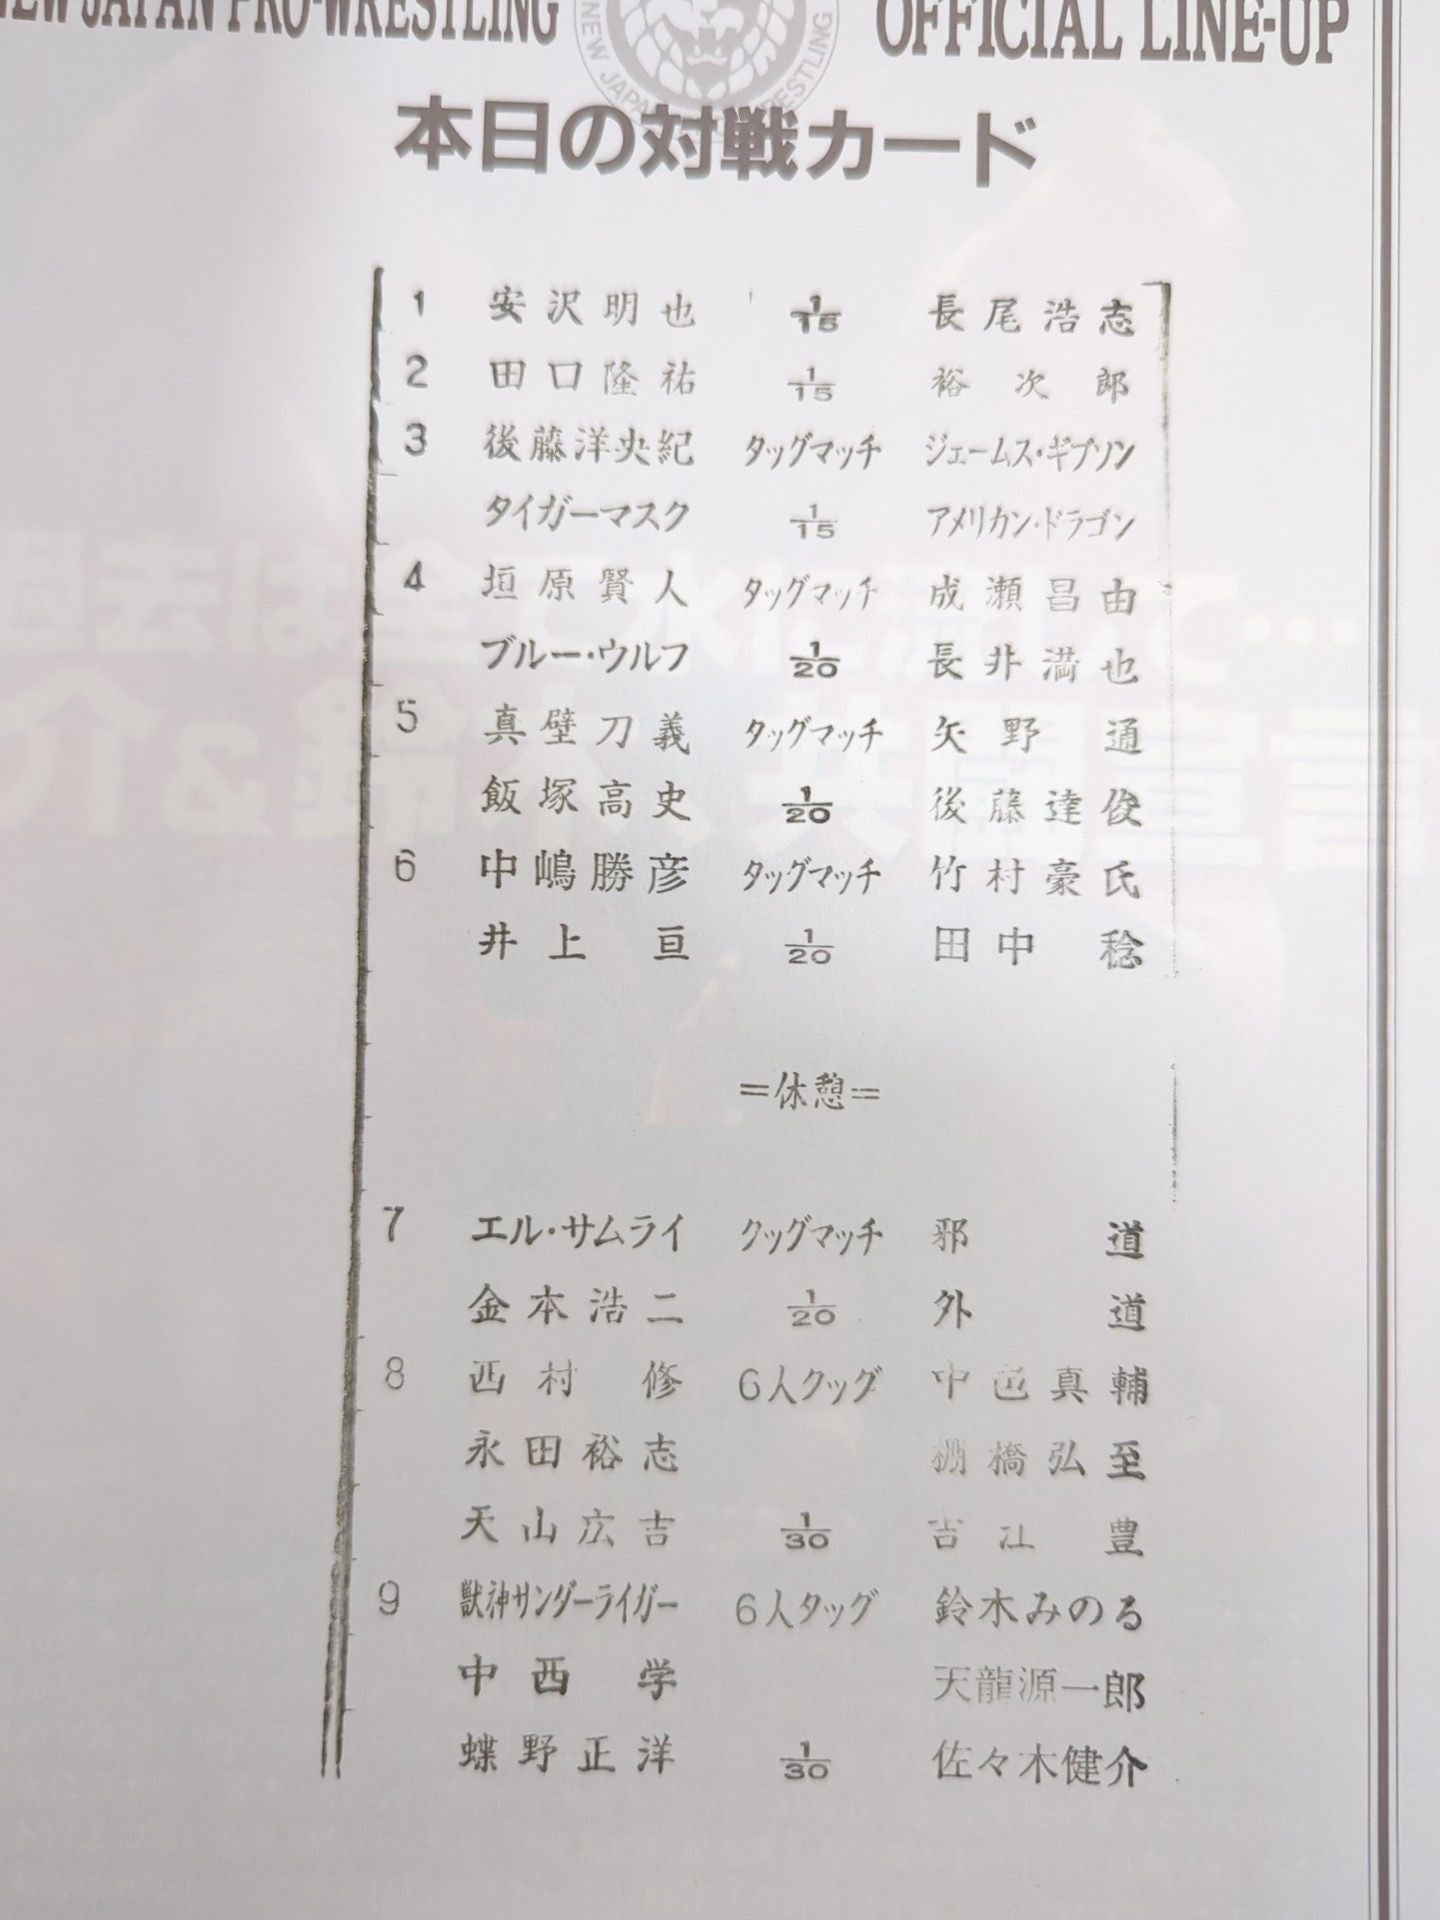 NEW JAPAN PRO-WRESTLING OFFICIAL LINE-UP
NEW JAPAN WRESTLING
本日の対戦カード
1 安沢明也 1/15 長尾浩志
2 田口隆祐 1/15 裕次郎
3 後藤洋央紀 タッグマッチ ジェームス・ギブソン
タイガーマスク 1/15 アメリカン・ドラゴン
4 垣原賢人 タッグマッチ 成瀬昌由
ブルー・ウルフ 1/20 長井満也
5 真壁刀義 タッグマッチ 矢野通
飯塚高史 1/20 後藤達俊
6 中嶋勝彦 タッグマッチ 竹村豪氏
井上亘 1/20 田中稔
=休憩=
7 エル・サムライ タッグマッチ 邪道
金本浩二 1/20 外道
8 西村修 6人タッグ 中邑真輔
永田裕志 棚橋弘至
天山広吉 1/30 吉江豊
9 獣神サンダーライガー 6人タッグ 鈴木みのる
中西学 天龍源一郎
蝶野正洋 1/30 佐々木健介